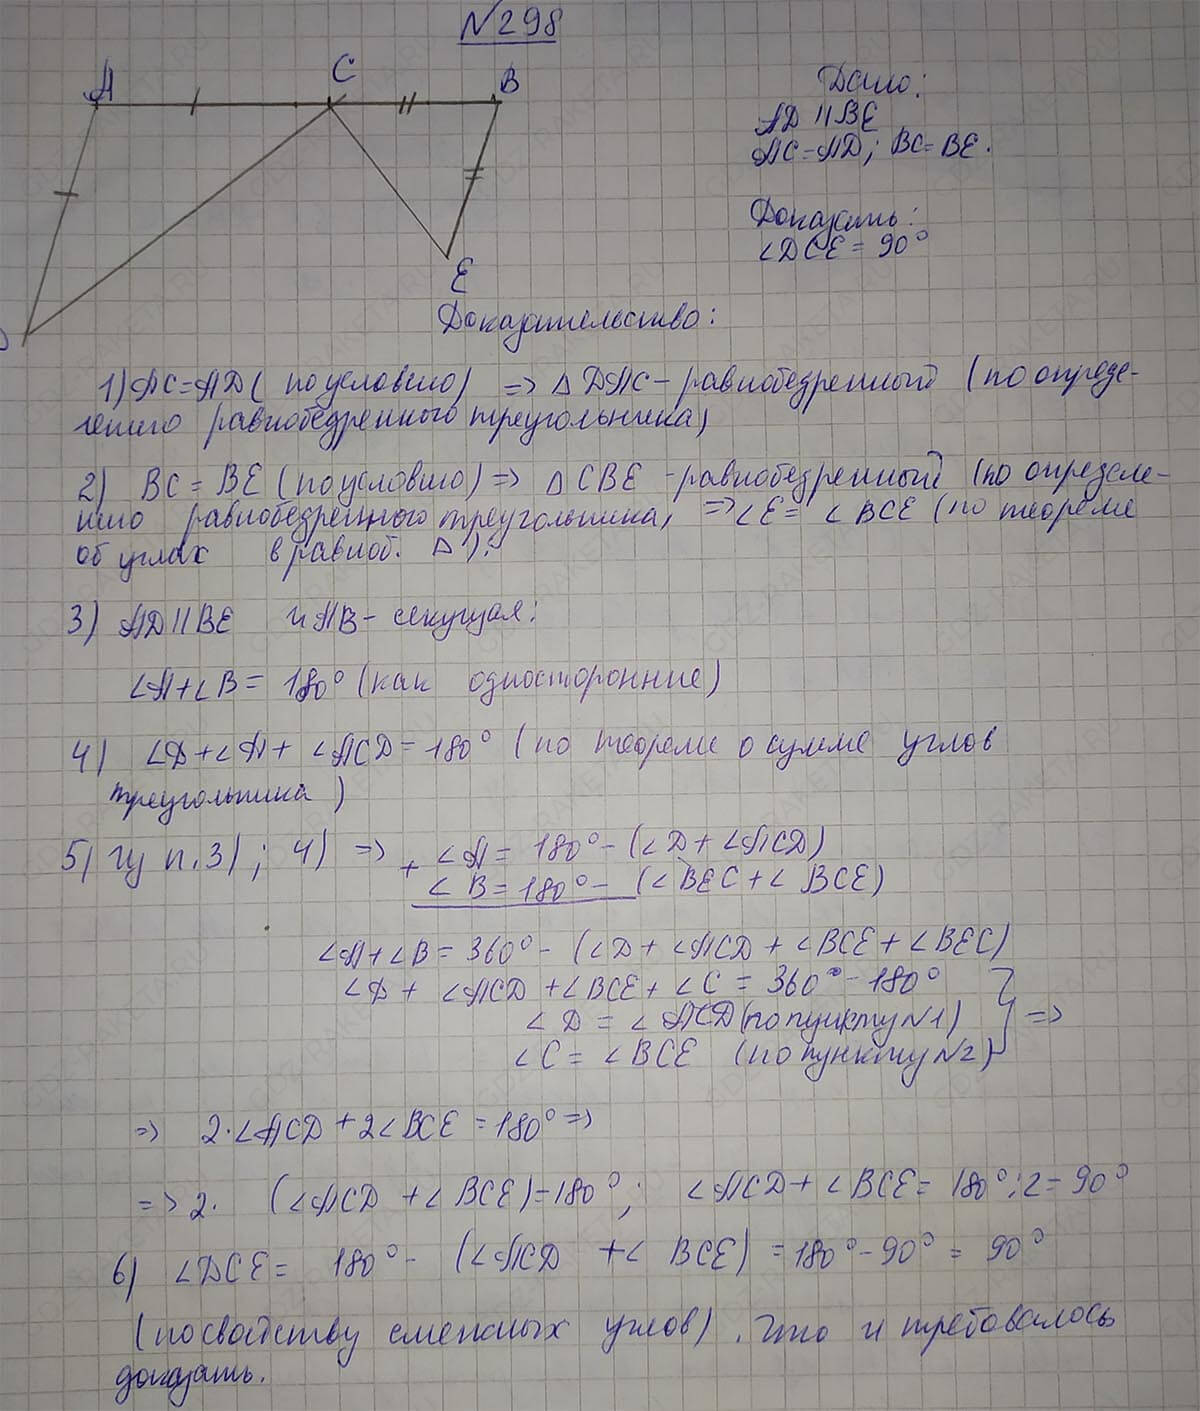 №298
A
C
B
E
D
Дано:
AD || BE
AC = AD; BC = BE.
Доказать:
∠DCE = 90°
Доказательство:
1) AC = AD (по условию) => △ DAC - равнобедренный (по опреде-
лению равнобедренного треугольника)
2) BC = BE (по условию) => △ CBE - равнобедренный (по определе-
нию равнобедренного треугольника, => ∠E = ∠BCE (по теореме
об углах в равноб. △);
3) AD || BE и AB - секущая:
∠A + ∠B = 180° (как односторонние)
4) ∠D + ∠A + ∠ACD = 180° (по теореме о сумме углов
треугольника)
5) из п. 3); 4) => + ∠A = 180° - (∠D + ∠ACD)
∠B = 180° - (∠BEC + ∠BCE)
∠A + ∠B = 360° - (∠D + ∠ACD + ∠BCE + ∠BEC)
∠D + ∠ACD + ∠BCE + ∠C = 360° - 180°
∠D = ∠ACD (по пункту №1) } =>
∠C = ∠BCE (по пункту №2)
=> 2·∠ACD + 2∠BCE = 180° =>
=> 2. (∠ACD + ∠BCE) = 180°; ∠ACD + ∠BCE = 180° : 2 = 90°
6) ∠DCE = 180° - (∠ACD + ∠BCE) = 180° - 90° = 90°
(по свойству смежных углов). Что и требовалось
доказать.